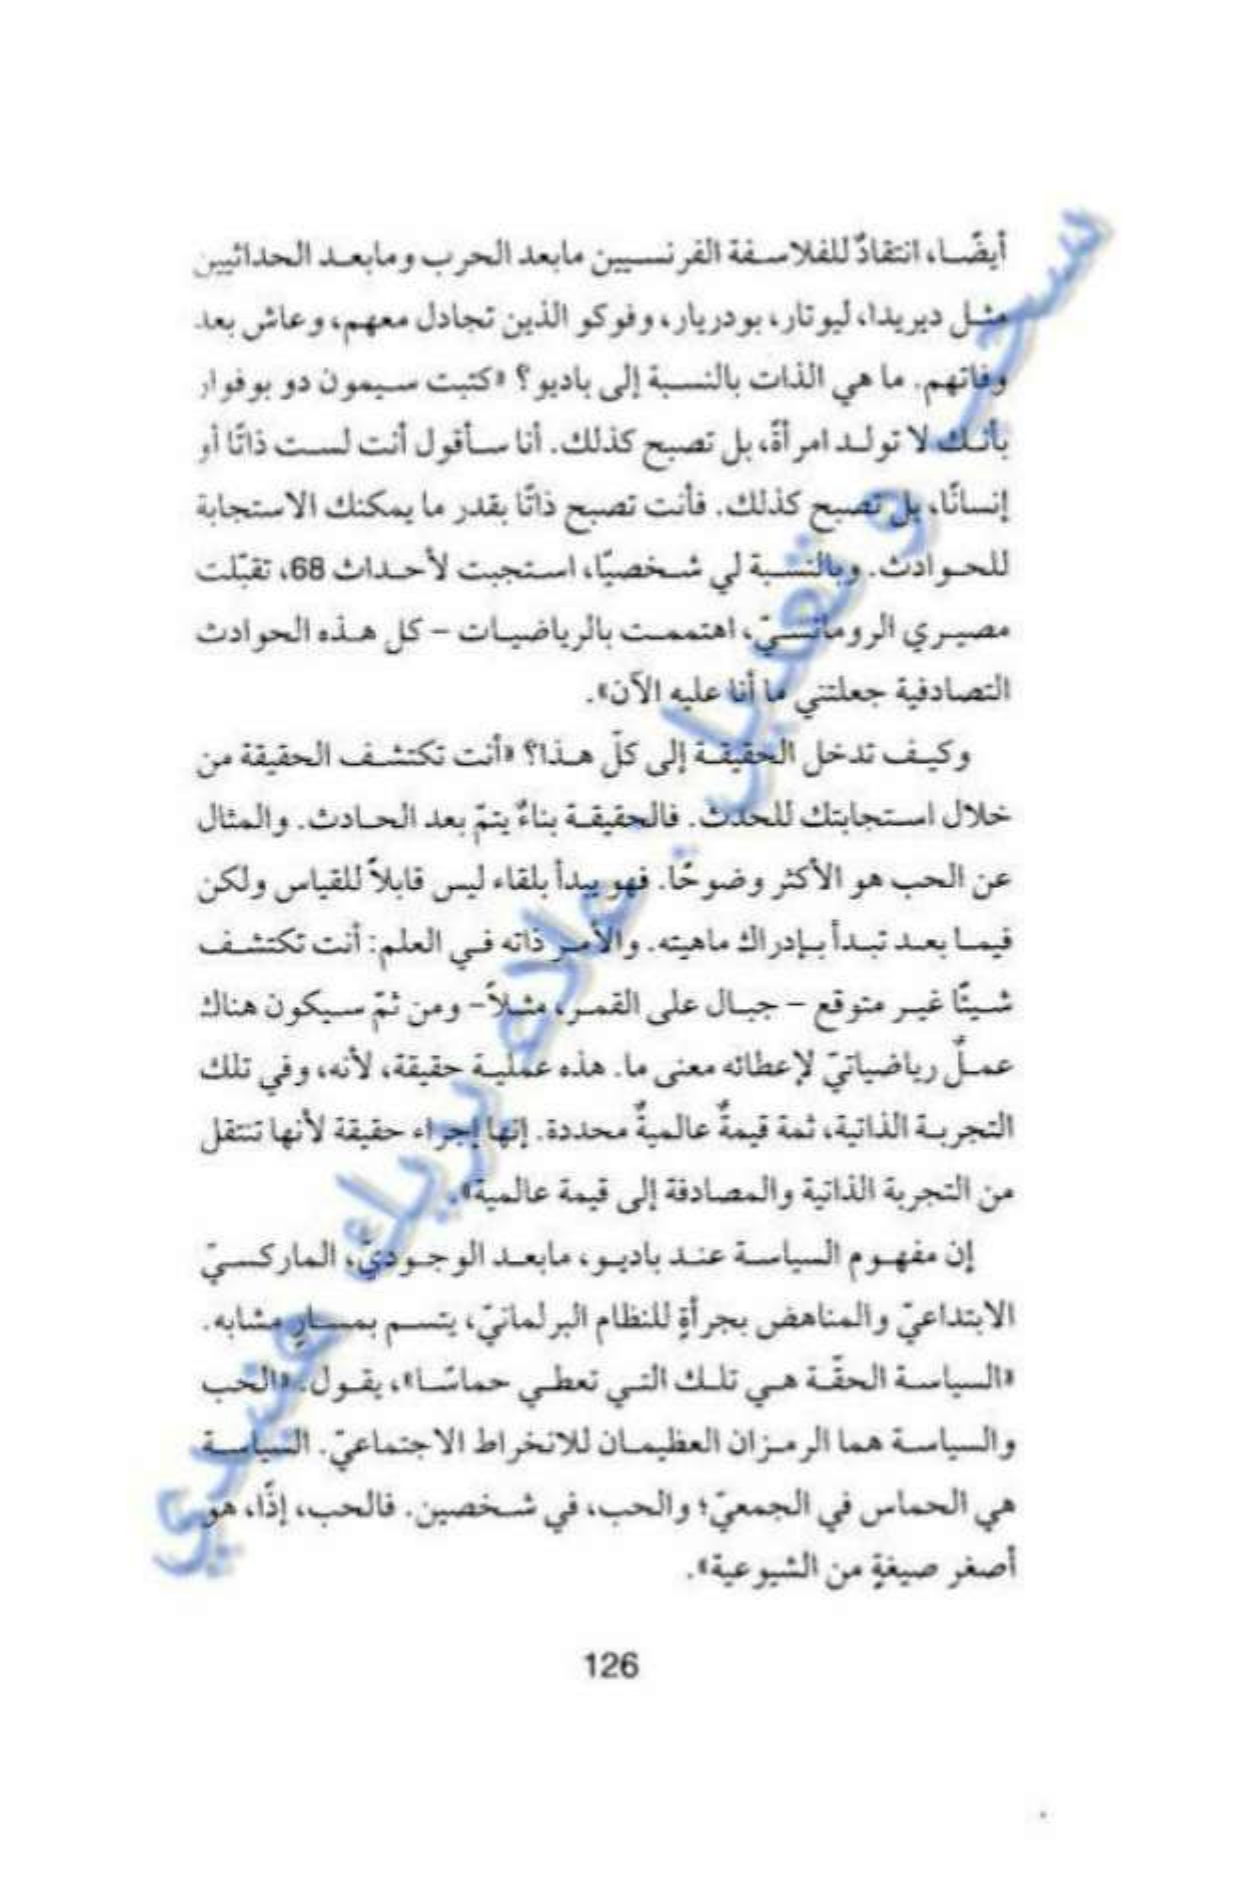 أيضًا، انتقادٌ للفلاسفة الفرنسيين مابعد الحرب ومابعد الحداثيين
مثل ديريدا، ليوتار، بودريار، وفوكو الذين تجادل معهم، وعاش بعد
وفاتهم. ما هي الذات بالنسبة إلى باديو؟ «كتبت سيمون دو بوفوار
بأنك لا تولد امرأةً، بل تصبح كذلك. أنا سأقول أنت لست ذاتًا أو
إنسانًا، بل تصبح كذلك. فأنت تصبح ذاتًا بقدر ما يمكنك الاستجابة
للحوادث. وبالنسبة لي شخصيًّا، استجبت لأحداث 68، تقبّلت
مصيري الرومانسيّ، اهتممت بالرياضيات – كل هذه الحوادث
التصادفية جعلتني ما أنا عليه الآن».
وكيف تدخل الحقيقة إلى كلّ هذا؟ «أنت تكتشف الحقيقة من
خلال استجابتك للحدث. فالحقيقة بناءٌ يتمّ بعد الحادث. والمثال
عن الحب هو الأكثر وضوحًا. فهو يبدأ بلقاء ليس قابلاً للقياس ولكن
فيما بعد تبدأ بإدراك ماهيته. والأمر ذاته في العلم: أنت تكتشف
شيئًا غير متوقع – جبال على القمر، مثلاً– ومن ثمّ سيكون هناك
عملٌ رياضياتيّ لإعطائه معنى ما. هذه عملية حقيقة، لأنه، وفي تلك
التجربة الذاتية، ثمة قيمةٌ عالميةٌ محددة. إنها إجراء حقيقة لأنها تنتقل
من التجربة الذاتية والمصادفة إلى قيمة عالمية».
إن مفهوم السياسة عند باديو، مابعد الوجوديّ، الماركسيّ
الابتداعيّ والمناهض بجرأةٍ للنظام البرلمانيّ، يتسم بمسارٍ مشابه.
«السياسة الحقّة هي تلك التي تعطي حماسًا»، يقول. «الحب
والسياسة هما الرمزان العظيمان للانخراط الاجتماعيّ. السياسة
هي الحماس في الجمعيّ؛ والحب، في شخصين. فالحب، إذًا، هو
أصغر صيغةٍ من الشيوعية».
126